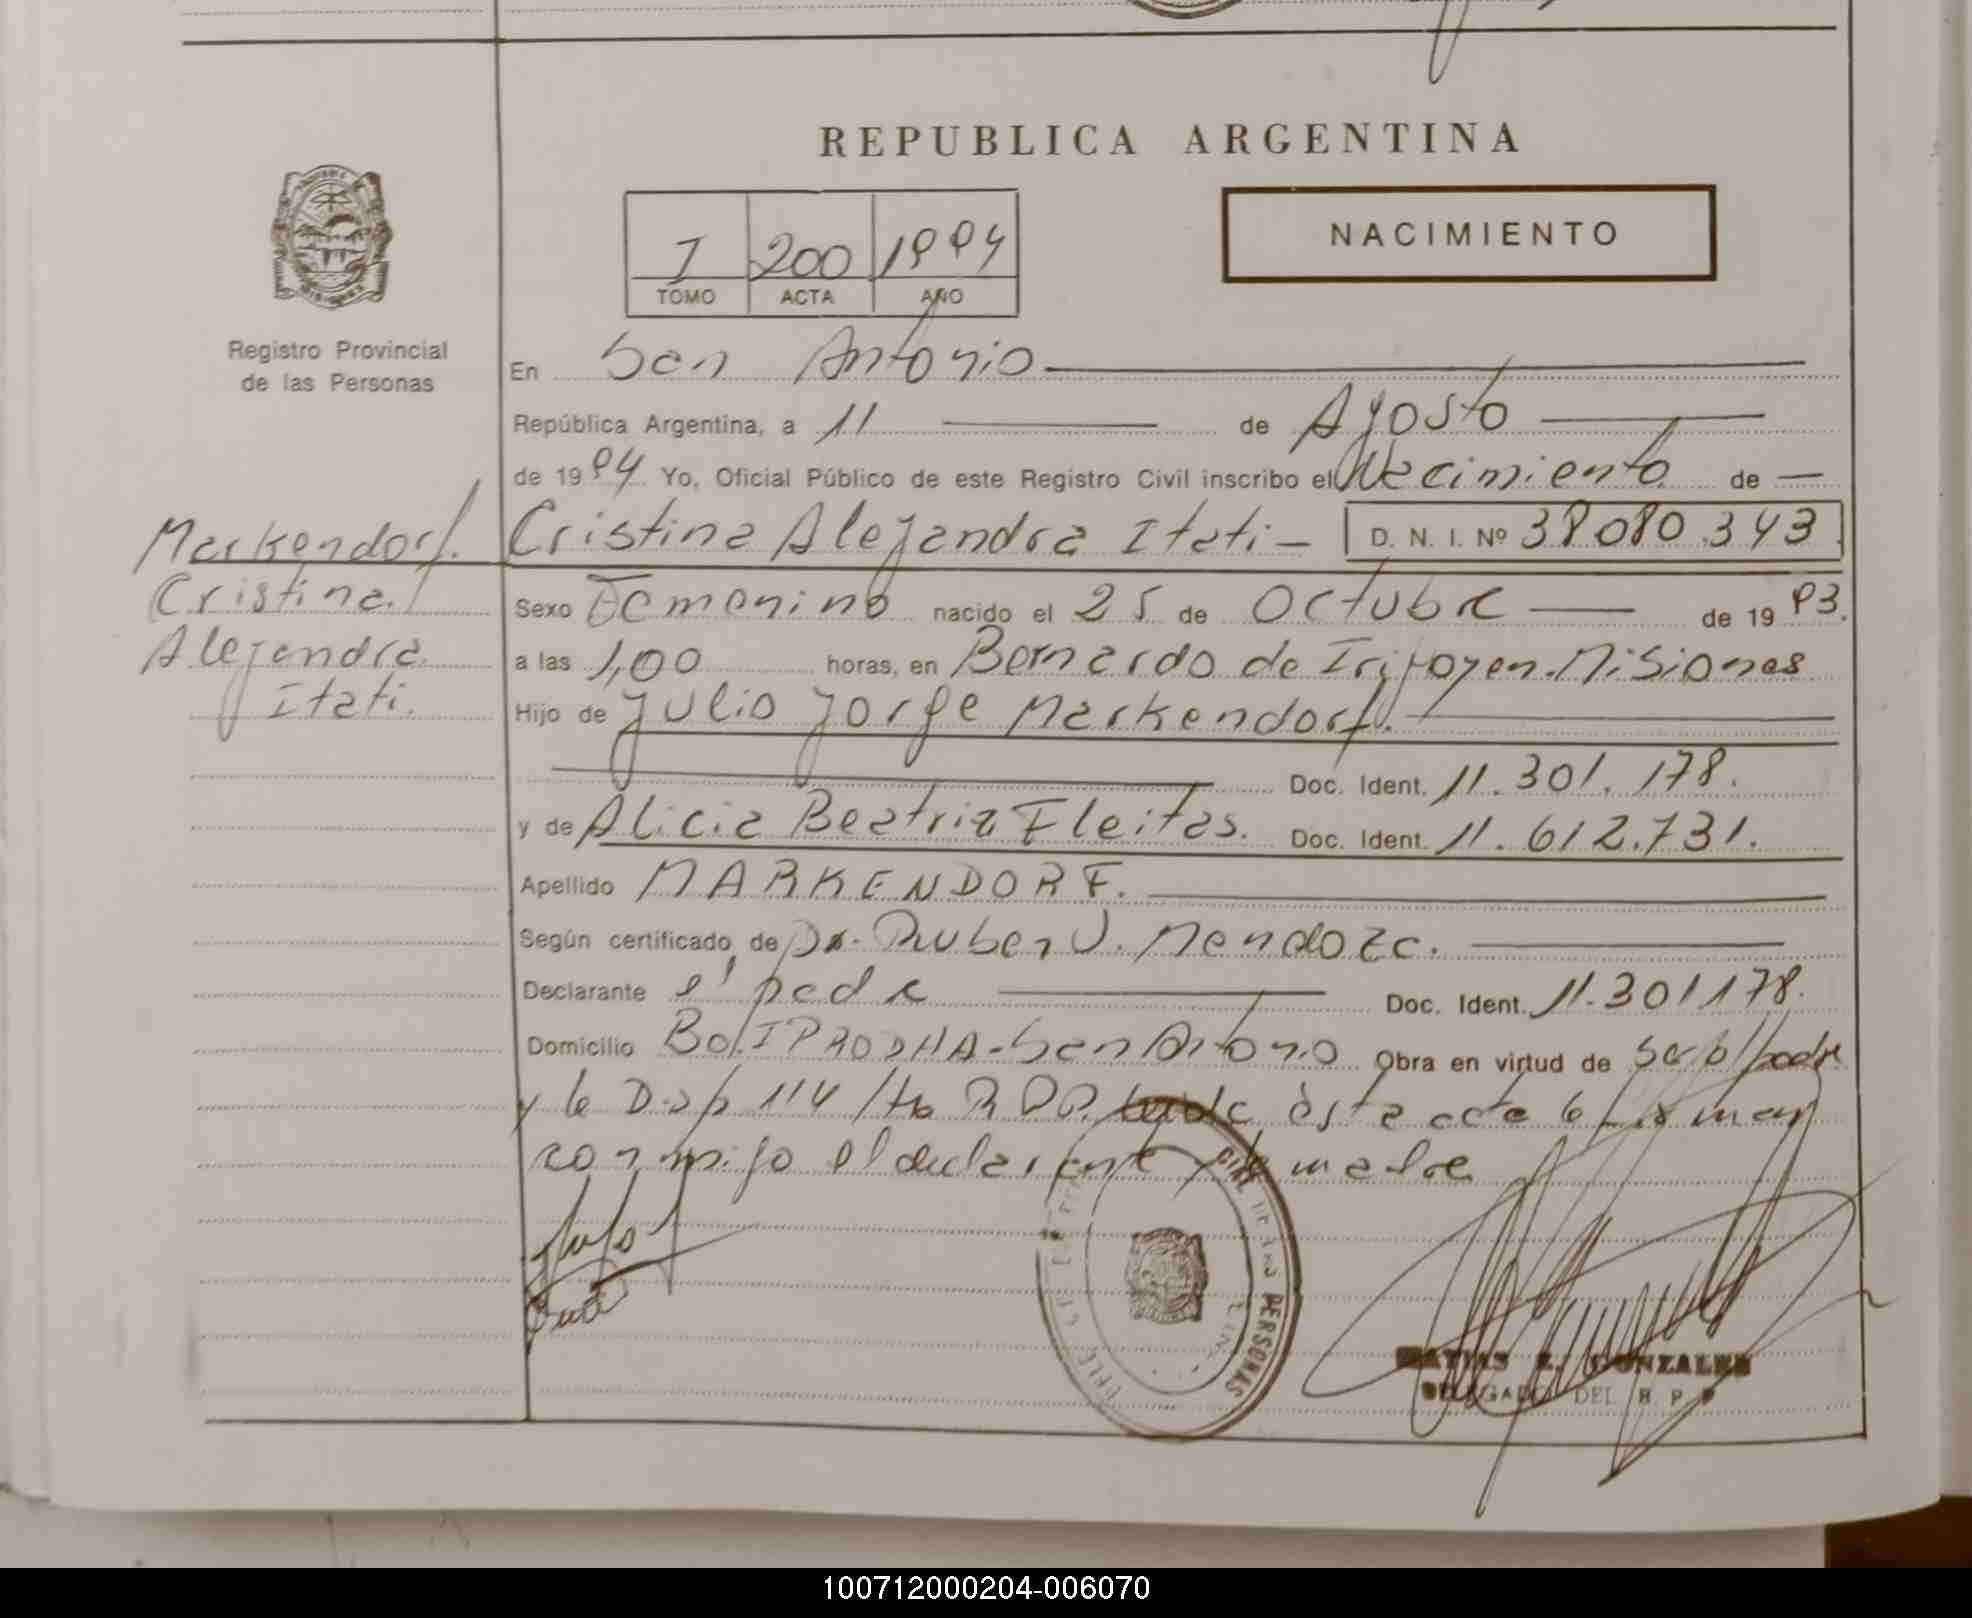 REPUBLICA ARGENTINA
NACIMIENTO
I 200 1994
TOMO ACTA AÑO
Registro Provincial
de las Personas
En San Antonio
República Argentina, a 11 de Agosto
de 1994 Yo, Oficial Público de este Registro Civil inscribo el Nacimiento de
Markendorf.
Cristina
Alejandra
Itati.
Cristina Alejandra Itati - D. N. I. Nº 38080.343
Sexo Femenino nacido el 25 de Octubre de 1993.
a las 1,00 horas, en Bernardo de Irigoyen. Misiones
Hijo de Julio Jorge Markendorf.
Doc. Ident. 11.301.178.
y de Alicia Beatriz Fleitas. Doc. Ident. 11.612.731.
Apellido MARKENDORF.
Según certificado de Dr. Ruben J. Mendoza.
Declarante el padre Doc. Ident. 11.301178.
Domicilio Bo. IPRODHA - San Antonio Obra en virtud de ser el padre
y la Disp 114 esta acta la firman
conmigo el declarante y la madre
PERSONAS
MATIAS R. GONZALEZ
DELEGADO DEL R. P. P
100712000204-006070